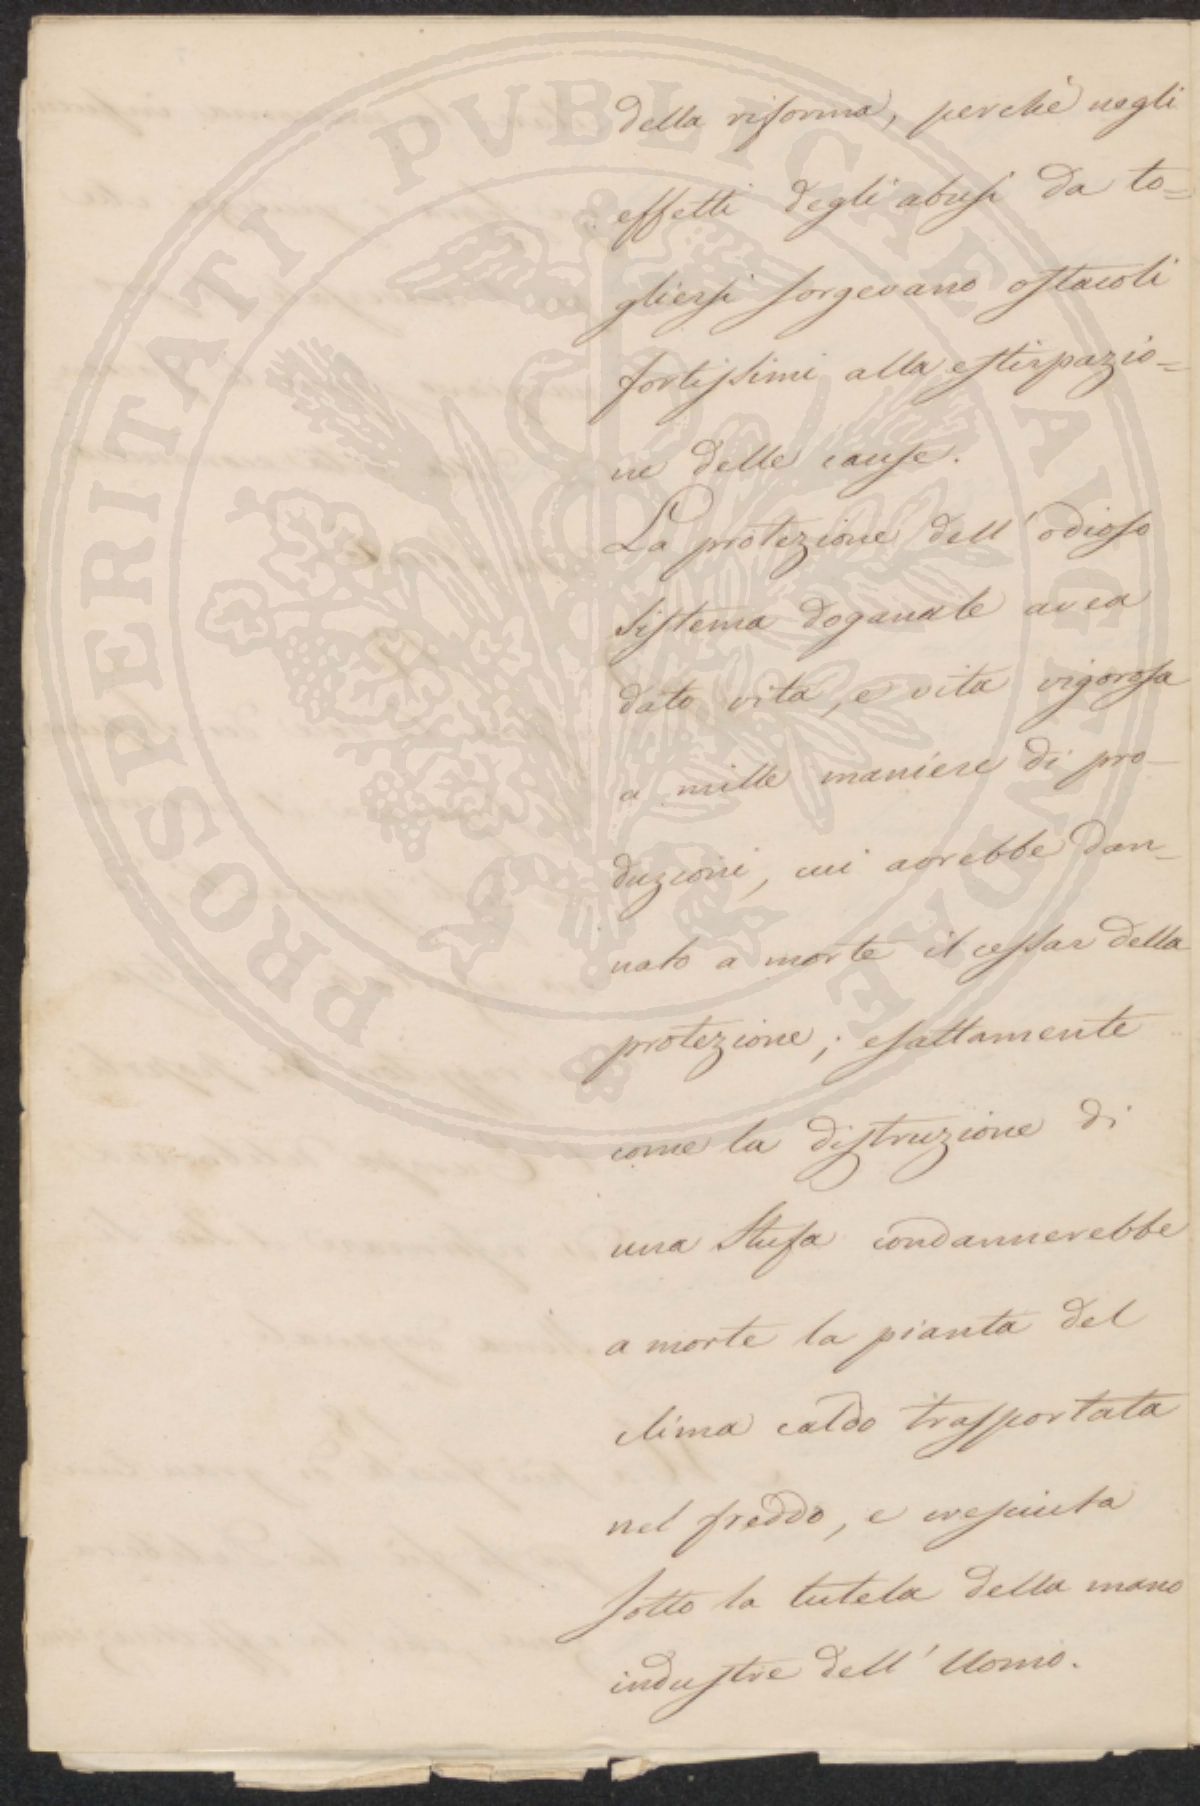 della riforma, perchè negli
effetti degli abusi da to=
gliersi sorgevano ostacoli
fortissimi alla estirpazio=
ne delle cause.
La protezione dell'odioso
sistema doganale avea
dato vita, e vita vigorosa
a mille maniere di pro-
duzioni, cui avrebbe dan-
nato a morte il cessar della
protezione; esattamente
come la distruzione di
una Stufa condannerebbe
a morte la pianta del
clima caldo trasportata
nel freddo, e cresciuta
sotto la tutela della mano
industre dell'Uomo.
PROSPERITATI PVBLICAE AVGENDAE